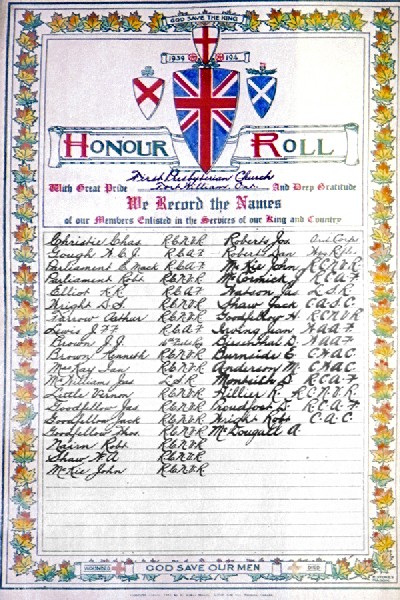 GOD SAVE THE KING
1939 194
HONOUR ROLL
First Presbyterian Church
With Great Pride Fort William, Ont. And Deep Gratitude
We Record the Names
of our Members Enlisted in the Services of our King and Country
Christie Chas. R.C.N.V.R Roberts Jos Ord Corps
Gough H.C.J. R.C.A.F. Roberts Dan
Parliament C. Mack R.C.A.F McKie John R.C.N.V.R.
Parliament Robt. R.C.N.V.R McCormick J. R.C.A.F.
Elliot R.R. R.C.A.F Watson Jas
Wright S.A. R.C.N.V.R Shaw Jack C.A.S.C.
Farrow Arthur R.C.N.V.R Goodfellow H. R.C.N.V.R
Lewis R.C.A.F Irving Jean
Brown J.J. D.
Brown Kenneth R.C.N.V.R Burnside C. C.W.A.C.
McKay Ian R.C.N.V.R Anderson M. C.W.A.C.
McWilliams Jas L.S.R Monteith D. R.C.A.F.
Little Vernon R.C.N.V.R Hillier R. R.C.N.V.R.
Goodfellow Jas R.C.N.V.R Proudfoot D. R.C.A.F.
Goodfellow Jack R.C.N.V.R Wright Robt C.A.C.
Goodfellow Thos. R.C.N.V.R McDougall A.
Nairn Robt. R.C.N.V.R
Shaw W.A. R.C.N.V.R
McKie John R.C.N.V.R
GOD SAVE OUR MEN